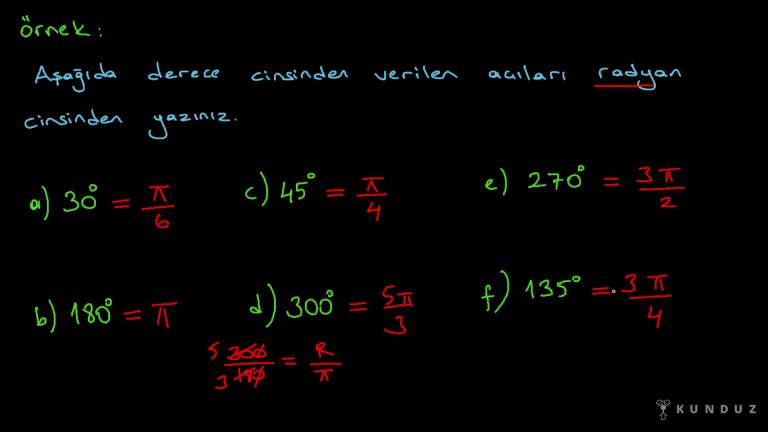 Örnek:
Aşağıda derece cinsinden verilen acıları radyan
cinsinden yazınız.
a) 30° = π/6
c) 45° = π/4
e) 270° = 3π/2
b) 180° = π
d) 300° = 5π/3
f) 135° = 3π/4
5 300/3 180 = R/π
KUNDUZ